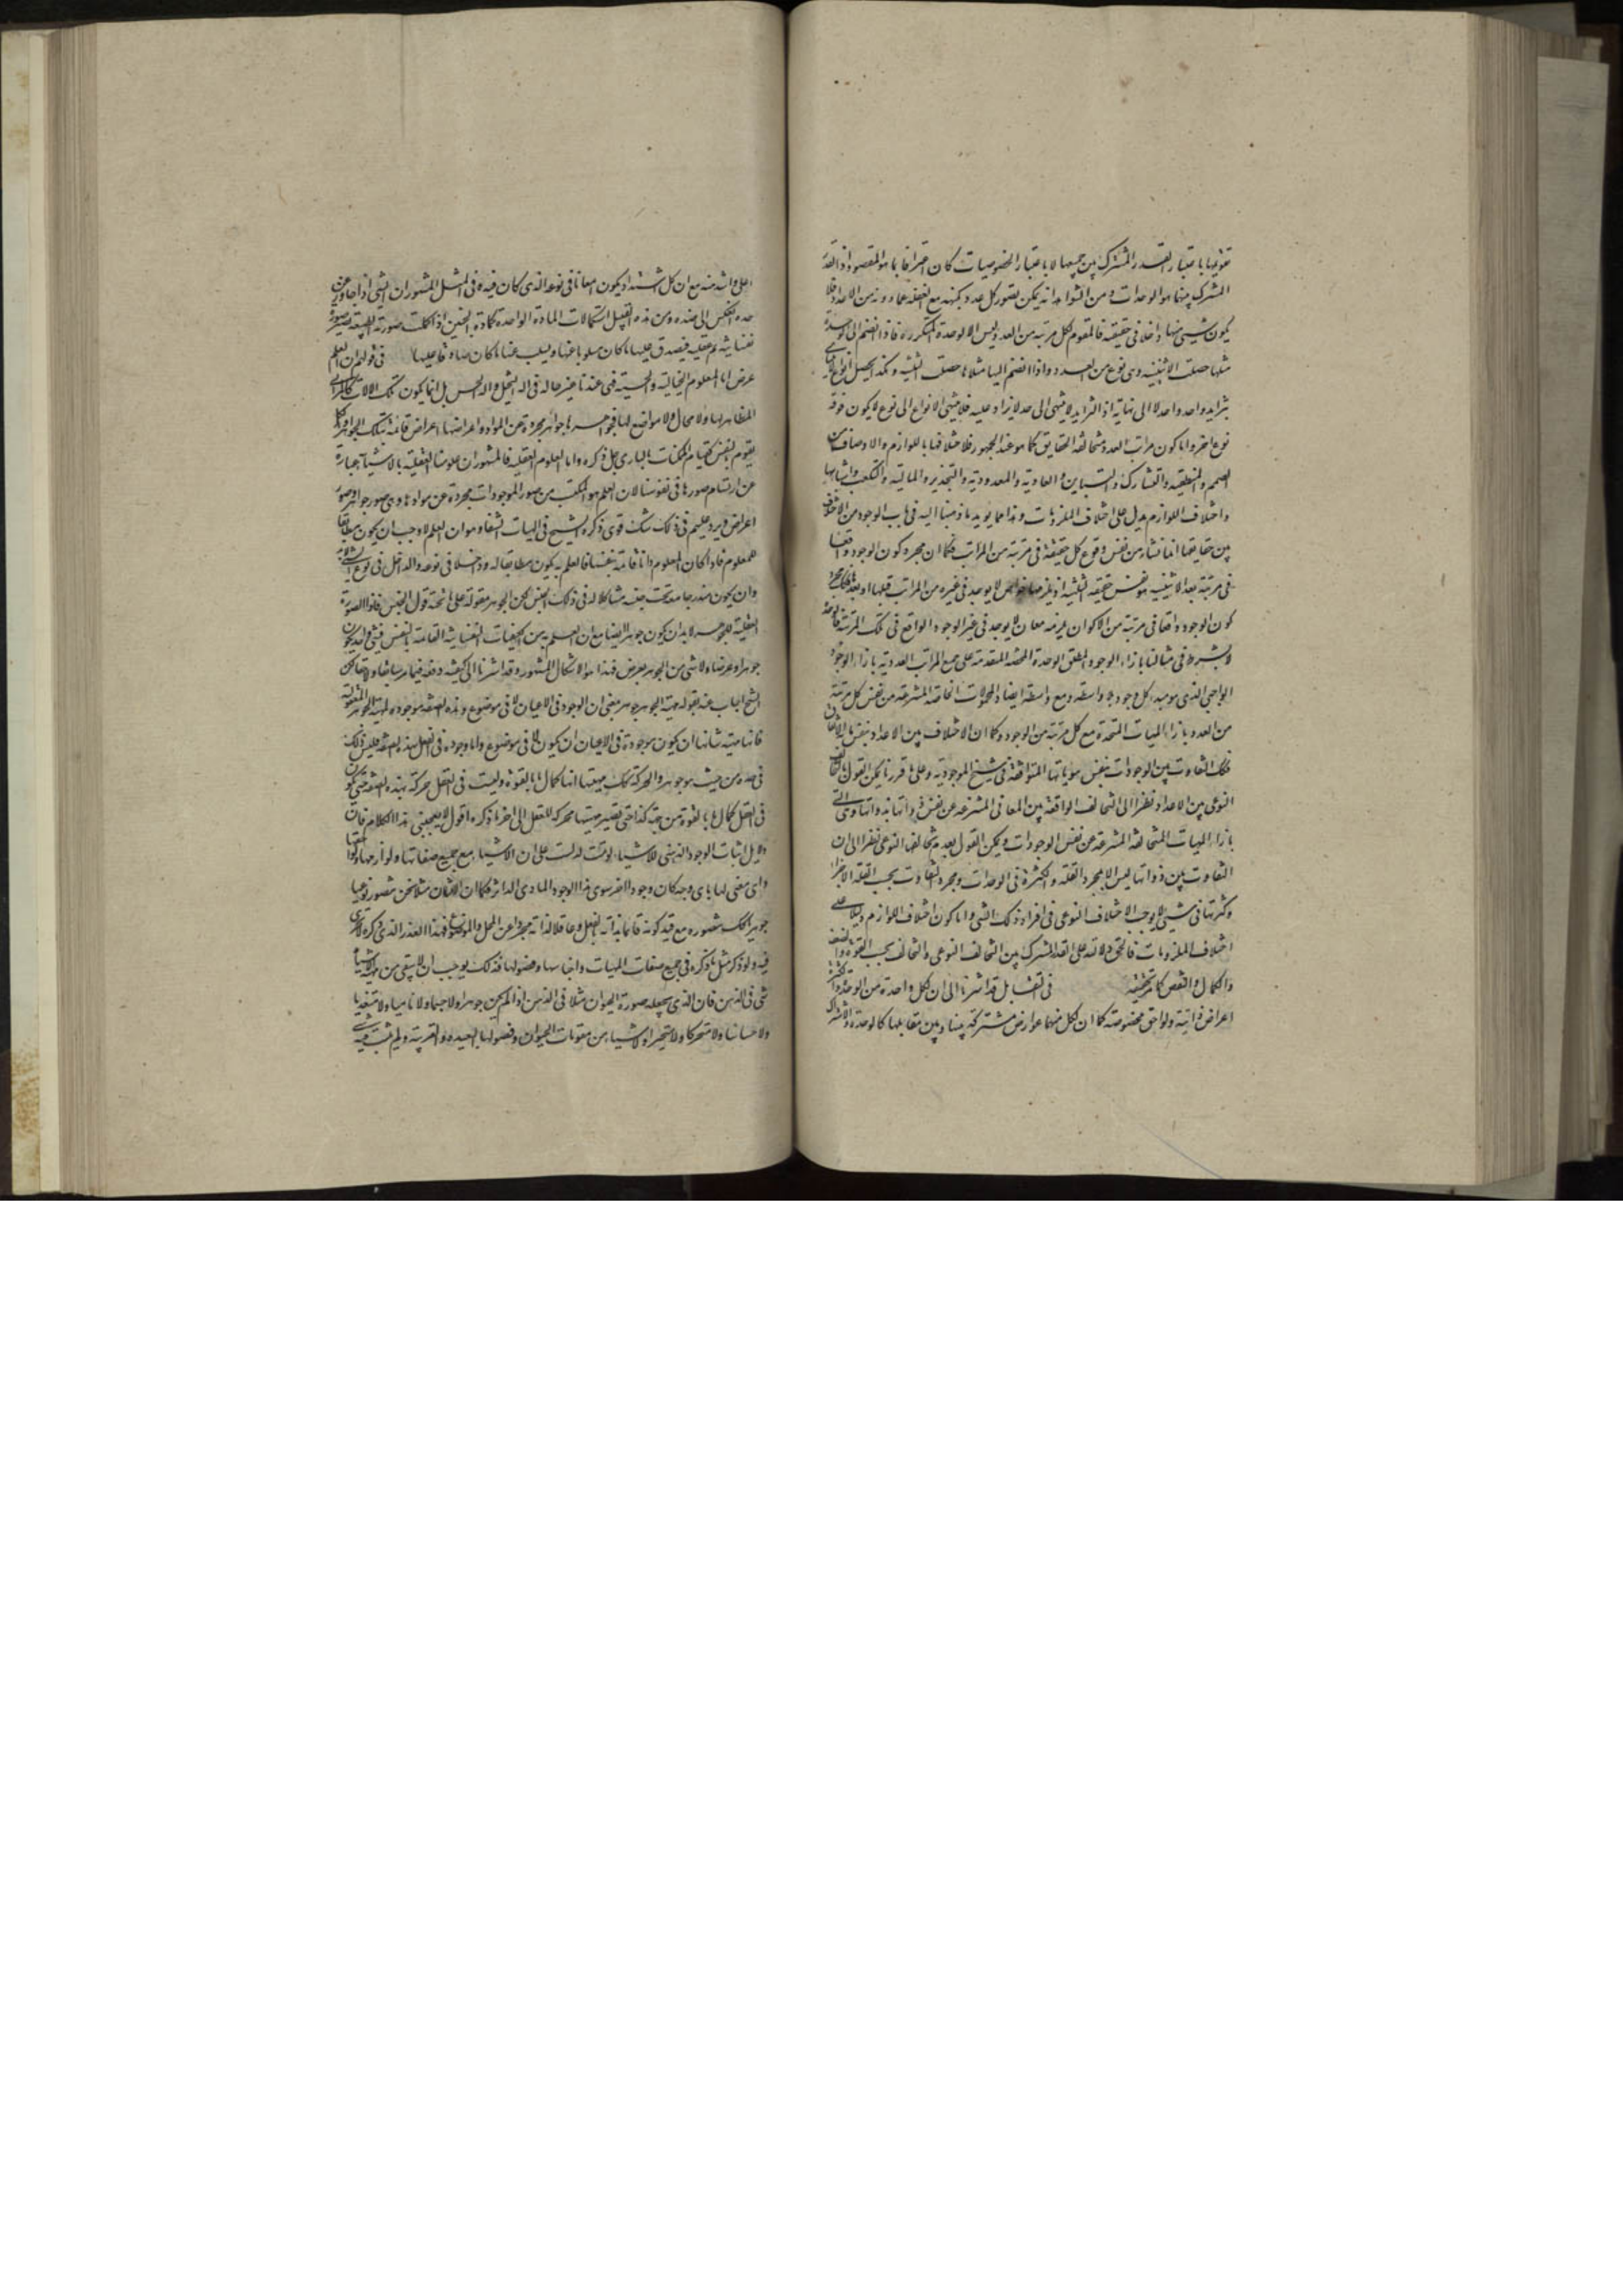 تقويمها باعتبار القدر المشترك بين جميعها لا باعتبار الخصوصيات كان اعترافا بما هو المقصود اذ القدر
المشترك بينها هو الوحدات و من الشواهد انه يمكن تصور كل عدد بكنهه مع الغفلة عما دونه من الاعداد فلا
يكون شيئ منها داخلا في حقيقته فالمقوم لكل مرتبة من العدد ليس الا الوحدة المتكررة فاذا انضم الى الوحدة
مثلها حصلت الاثنينية وهى نوع من العدد و اذا انضم اليها مثلاها حصلت الثلثية وهكذا يحصل انواع لا يتناهى
بتزايد واحد واحد لا الى نهاية اذ التزايد لا ينتهى الى حد لا يزاد عليه فلا ينتهى الانواع الى نوع لا يكون فوقه
نوع اخر و اما كون مراتب العدد متخالفة الحقايق كما هو عند الجمهور فلاختلافها باللوازم والاوصاف من
الصمم والمنطقية والتشارك والتباين والعادية والمعدودية والتجذير والمالية والتكعب واشباهها
واختلاف اللوازم يدل على اختلاف الملزومات وهذا مما يويد ما ذهبنا اليه فى باب الوجود من الاختلاف
بين حقايقها انما نشاء من نفس وقوع كل حقيقة فى مرتبة من المراتب فكما ان مجرد كون الوجود واقعا
فى مرتبة بعد الاثنينية هو نفس حقيقة الثلثية اذ يلزمها خواص لا يوجد فى غيره من المراتب قبلها او بعدها فكذلك مجرد
كون الوجود واقعا فى مرتبة من الاكوان يلزمه معان لا يوجد فى غير الوجود الواقع فى تلك المرتبة فالوحدة
لا بشرط فى مثالنا بازاء الوجود المطلق والوحدة المحضة المتقدمة على جميع المراتب العددية بازاء الوجود
الواجبى الذى هو مبدء كل وجود بلا واسطة و مع واسطة ايضا والمحمولات الخاصة المنتزعة من نفس كل مرتبة
من العدد بازاء المهيات المتحدة مع كل مرتبة من الوجود وكما ان الاختلاف بين الاعداد بنفس ما به الاتفاق
فكذلك التفاوت بين الوجودات بنفس هوياتها المتوافقة فى سنخ الموجودية وعلى ما قررنا يمكن القول بالتخالف
النوعى بين الاعداد نظرا الى التخالف الواقع بين المعانى المنتزعة عن نفس ذواتها بذواتها وهى التى
بازاء المهيات المتخالفة المنتزعة عن نفس الوجودات ويمكن القول بعدم تخالفها النوعى نظرا الى ان
التفاوت بين ذواتها ليس الا بمجرد القلة والكثرة فى الوحدات ومجرد التفاوت بحسب قلة الاجزاء
وكثرتها فى شيئ لا يوجب الاختلاف النوعى فى افراد ذلك الشى واما كون اختلاف اللوازم دليلا على
اختلاف الملزومات فالحق دلالته على القدر المشترك بين التخالف النوعى والتخالف بحسب القوة والضعف
والكمال والنقص كما مر تحقيقه فى التقابل قد اشرنا الى ان لكل واحدة من الوحدة والكثرة
اعراض ذاتية ولواحق مخصوصة كما ان لكل منهما عوارض مشتركة بينها وبين مقابلها كالوحدة والاشتراك
اعلى واشد منه مع ان كل اشتداد يكون امعانا فى نوعه الذى كان فيه وفى المثل المشهور ان الشى اذا جاوز عن
حده انعكس الى ضده ومن هذه القبيل استكمالات المادة الواحدة كمادة الجنين اذا كملت صورته الطبيعية تصير صورة
نفسانية ثم عقلية فيصدق عليها ما كان مسلوبا عنها ويسلب عنها ما كان صادقا عليها فى قولهم ان العلم
عرض اما المعلوم الخيالية والحسية فهى عندنا غير حالة فى الة التخيل والة الحس بل انما يكون تلك الالات كالمرائى
المظاهر لها ولا محال ولا مواضع لها فجواهرها جواهر مجردة عن المواد واعراضها اعراض قائمة بتلك الجواهر والكل
يقوم بالنفس كقيام الممكنات بالبارى جل ذكره واما العلوم العقلية فالمشهور ان علومنا العقلية بالاشياء عبارة
عن ارتسام صورها فى نفوسنا لان العلم هو المكتسب من صور الموجودات مجردة عن موادها وهى صور جواهر وصور
اعراض ويرد عليهم فى ذلك شك قوى ذكره الشيخ فى الهيات الشفا وهو ان العلم لما وجب ان يكون مطابقا
للمعلوم فاذا كان المعلوم ذاتا قائمة بنفسها فالعلم به يكون مطابقا له وداخلا فى نوعه والداخل فى نوع الشى لابد
وان يكون مندرجا معه تحت جنسه مشاكلا له فى ذلك الجنس لكن الجوهر مقولة على ما تحته قول الجنس فاذا الصورة
العقلية للجوهر لابد ان يكون جوهرا ايضا مع ان العلم به من الكيفيات النفسانية القائمة بالنفس فشى واحد يكون
جوهرا وعرضا ولا شى من الجوهر بعرض فهذا هو الاشكال المشهور وقد اشرنا الى كيفية دفعه فيما مر سابقا ولاحقا لكن
الشيخ اجاب عنه بقوله مهية الجوهر جوهر بمعنى ان الموجود فى الاعيان لا فى موضوع وهذه الصفة موجودة لمهية الجواهر المعقولة
فانها مهية شانها ان يكون موجودة فى الاعيان ان يكون لا فى موضوع واما وجوده فى العقل بهذه الصفة فليس ذلك
فى حده من حيث هو جوهر والحركة كذلك مهيتها انها كمال ما بالقوة وليست فى العقل حركة بهذه الصفة حتى يكون
فى العقل كمال ما بالقوة من جهة كذا حتى تصير مهيتها محركة للعقل الى اخر ما ذكره اقول لا يعجبنى هذا الكلام فان
دلايل اثبات الوجود الذهنى للاشياء لو تمت لدلت على ان الاشياء مع جميع صفاتها ولوازمها ولواحقها
واى معنى لها باى وجه كان وجودا اخر سوى هذا الوجود المادى الدائر فكما ان الانسان مثلا نحن نتصور نوعيا
جوهرا كك نتصوره مع قيد كونه قائما بذاته بالفعل وعاقلا لذاته مجردا عن المحل والموضوع فهذا العذر الذى ذكره لا يجرى
فيه ولو ذكر مثل ما ذكره فى جميع صفات المهيات واجناسها وفصولها فذلك يوجب ان لا يبقى من مهية الاشياء
شى فى الذهن فان الذى يجعله صورة الحيوان مثلا فى الذهن اذا لم يكن جوهرا ولا جسما ولا ناميا ولا متغذيا
ولا حساسا ولا متحركا ولا متحيزا ولا شيئا من مقومات الحيوان وفصولها البعيدة والقريبة ولم يثبت فيه شى